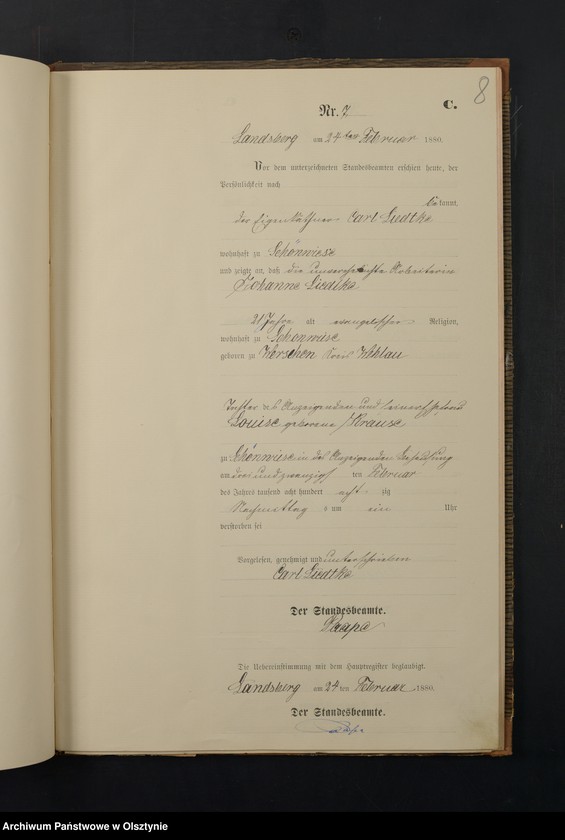 8
C.
Nr. 7
Landsberg am 24 ten Februar 1880.
Vor dem unterzeichneten Standesbeamten erschien heute, der
Persönlichkeit nach
bekannt,
der Eigenkäthner Carl Liedtke
wohnhaft zu Schönwiese
und zeigte an, daß die unverehelichte Arbeiterin
Johanne Liedtke
21 Jahre alt evangelischer Religion,
wohnhaft zu Schönwiese
geboren zu Kreis Wehlau
Tochter des Anzeigenden und seiner Ehefrau
Louise geborene Krause
zu Schönwiese in des Anzeigenden Behausung
am drei und zwanzigsten Februar
des Jahrs tausend acht hundert acht zig
Nachmittag s um ein Uhr
verstorben sei
Vorgelesen, genehmigt und unterschrieben
Carl Liedtke
Der Standesbeamte.
Die Uebereinstimmung mit dem Hauptregister beglaubigt.
Landsberg am 24 ten Februar 1880.
Der Standesbeamte.
Archiwum Państwowe w Olsztynie